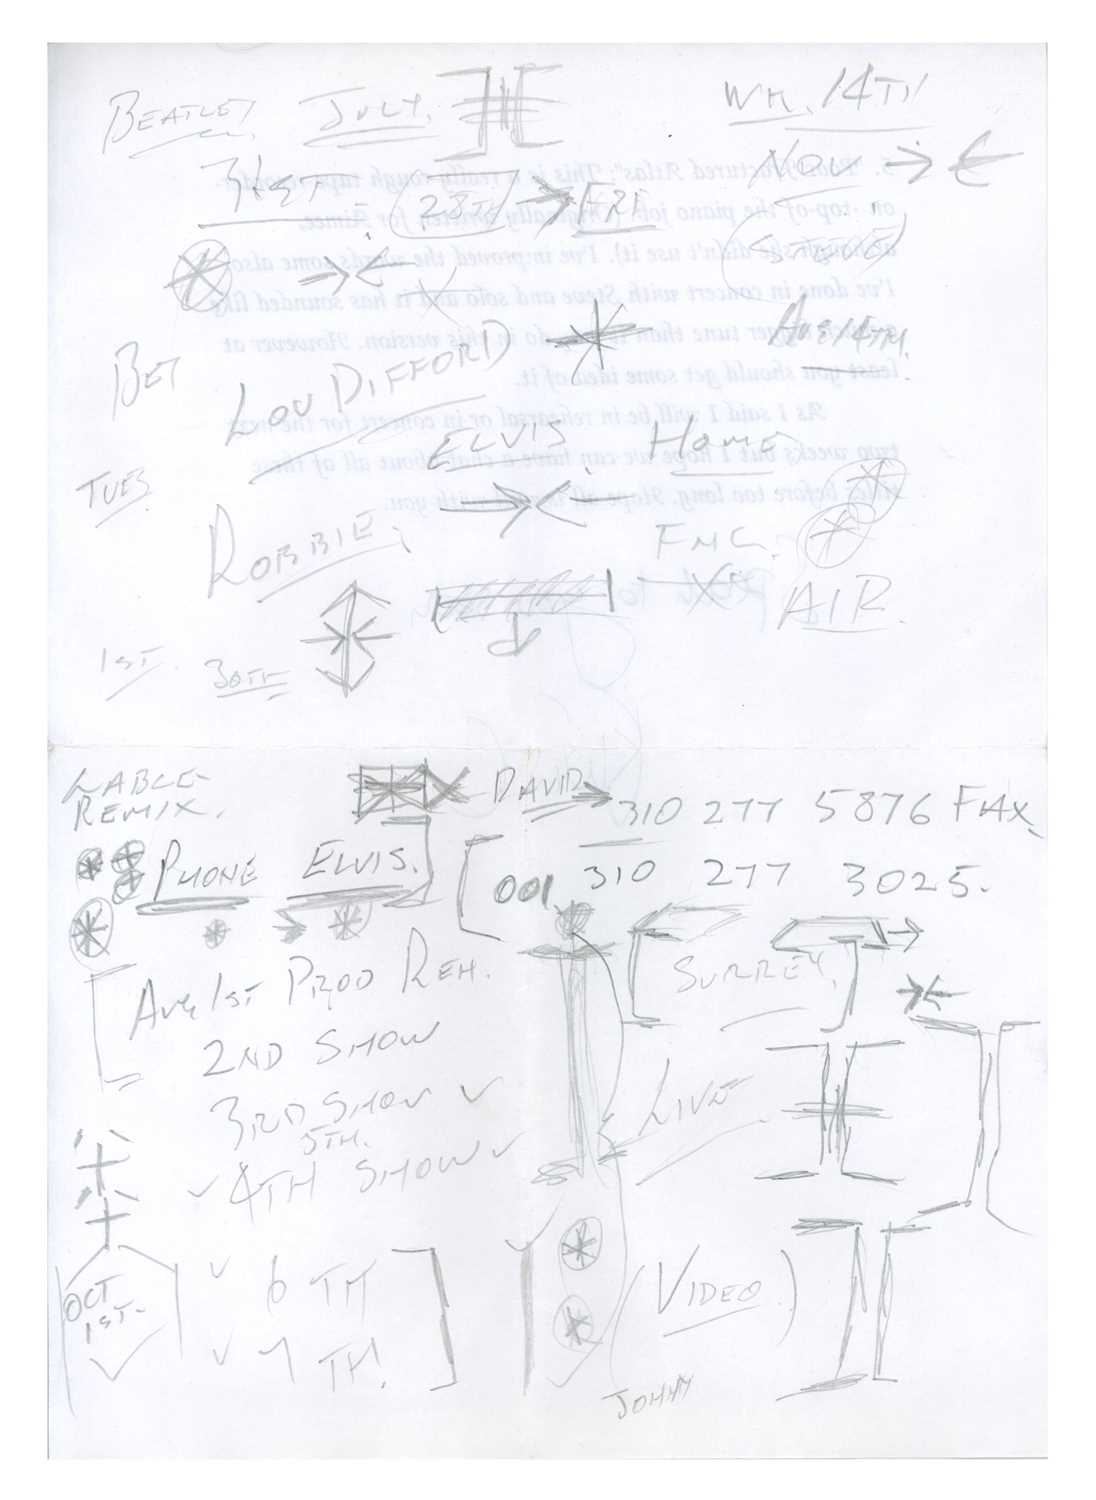 BEATLEY JULY. WK. 14TH
31ST = (28TH → FRI YOU → ←
(SINGLE)
AUG 14TH.
BET LOU DIFFORD
ELVIS. HOME
TUES.
ROBBIE. FMC.
AIR
1ST. 30TH
LABLE DAVID → 310 277 5876 FAX
REMIX.
PHONE ELVIS. 001 310 277 3025.
AUG 1ST PROD REH. SURREY.
2ND SHOW
3RD SHOW ✓ LIVE
5TH.
✓ 4TH SHOW ✓
OCT ✓ 6TH (VIDEO)
1ST- ✓ 7TH!
JOHNY
5. "Poor Fractured Atlas"; This is a really rough tape recorder-
on -top-of the piano job (Originally written for Aimee,
although she didn't use it). I've improved the words some also
I've done in concert with Steve and solo and it has sounded like
a much bigger tune than it may do in this version. However at
least you should get some idea of it.
As I said I will be in rehearsal or in concert for the next
two weeks but I hope we can have a chat about all of these
titles before too long. Hope all is well with you.